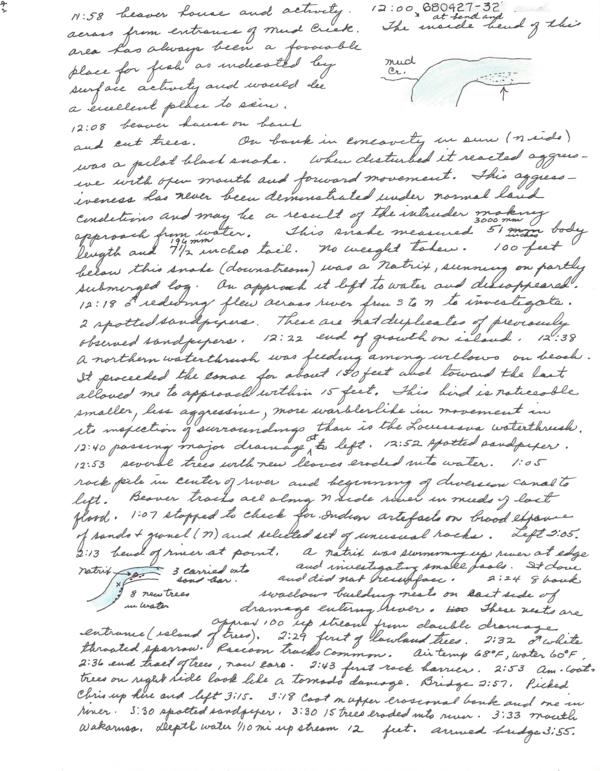 11:58 beaver house and activity. 12:00 680427-32
across from entrance of Mud Creek. at bend and The inside bend of this
area has always been a favorable
place for fish as indicated by
surface activity and would be
a excellent place to sein.
Mud
Cr.
12:08 beaver house on bank
and cut trees. On bank in concavity in sun (N side)
was a pilot black snake. When disturbed it reacted aggress-
ive with open mouth and forward movement. This aggress-
iveness has never been demonstrated under normal land
conditions and may be a result of the intruder making
approach from water. This snake measured 51 inches body
length and 7 1/2 inches tail. No weight taken. 100 feet
below this snake (downstream) was a Natrix, sunning on partly
submerged log. On approach it left to water and disappeared.
12:18 ♂ redwing flew across river from S to N to investigate.
2 spotted sandpipers. These are not duplicates of previously
observed sandpipers. 12:22 end of growth on island. 12:38
A northern waterthrush was feeding among willows on beach.
It proceeded the canoe for about feet and toward the last
allowed me to approach within 15 feet. This bird is noticeable
smaller, less aggressive, more warblerlike in movement in
its inspection of surroundings than is the Louisiana waterthrush.
12:40 passing major drainage to left. 12:52 spotted sandpiper.
12:53 several trees with new leaves eroded into water. 1:05
rock pile in center of river and beginning of diversion canal to
left. Beaver tracks all along N side river in muds of last
flood. 1:07 stopped to check for Indian artefacts on broad expanse
of sands & gravel (N) and selected set of unusual rocks. Left 2:05.
2:13 bend of river at point. A natrix was swimming up river at edge
Natrix 3 carried into and investigating small pools. It dove
sand bar. and did not resurface. 2:24 8 bank
8 new trees swallows building nests on east side of
in water drainage entering river. These nests are
approx 100 up stream from double drainage
entrance (island of trees). 2:29 first of lowland trees. 2:32 ♂ white
throated sparrow. Racoon tracks common. Air temp 68°F, water 60°F.
2:36 end tract of trees, now ears. 2:43 first rock barrier. 2:53 Am. Coot.
trees on right side look like a tornado damage. Bridge 2:57. Picked
Chris up here and left 3:15. 3:18 Coot on upper erosional bank and one in
river. 3:30 spotted sandpiper. 3:30 15 trees eroded into river. 3:33 mouth
Wakarusa. Depth water 1/10 mi up stream 12 feet. arrived bridge 3:55.